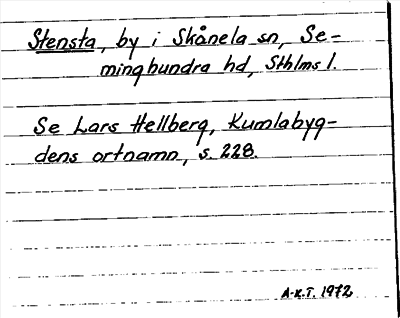 Stensta, by i Skånela sn, Se-
minghundra hd, Sthlms l.
Se Lars Hellberg, Kumlabyg-
dens ortnamn, s. 228.
A-K.T. 1972